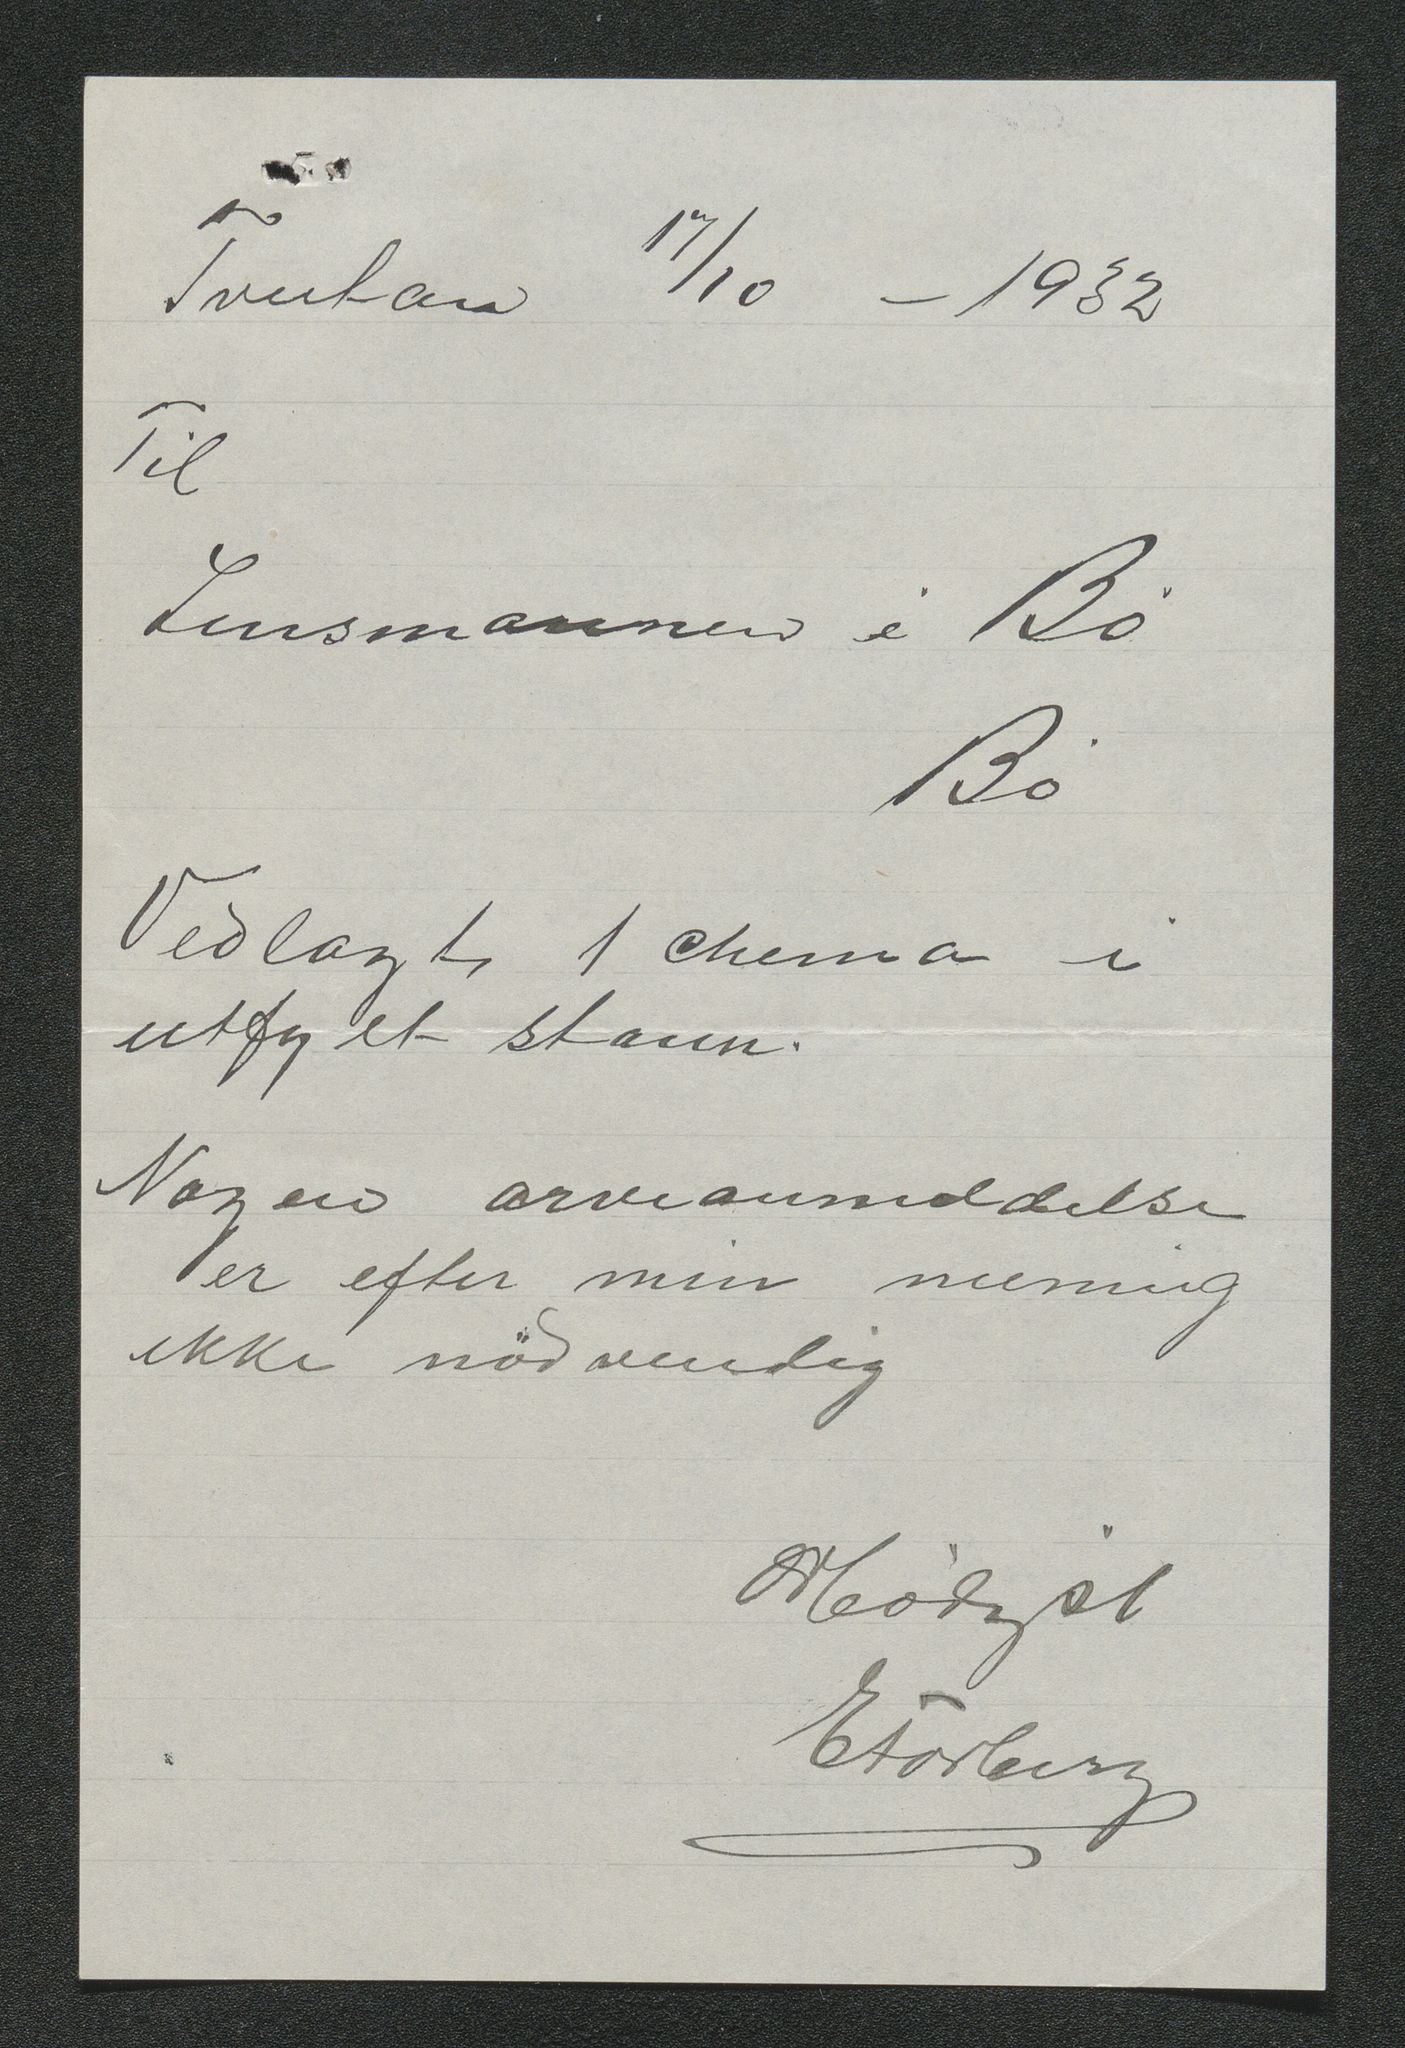 Tveitan 17/10 - 1932
Til
Lensmannen i Bö
Bö
Vedlagt 1 chema i
utfylt stann.
Nogen arveanmeldelse
er efter min mening
ikke nödvendig
Höiagst
E Torberg